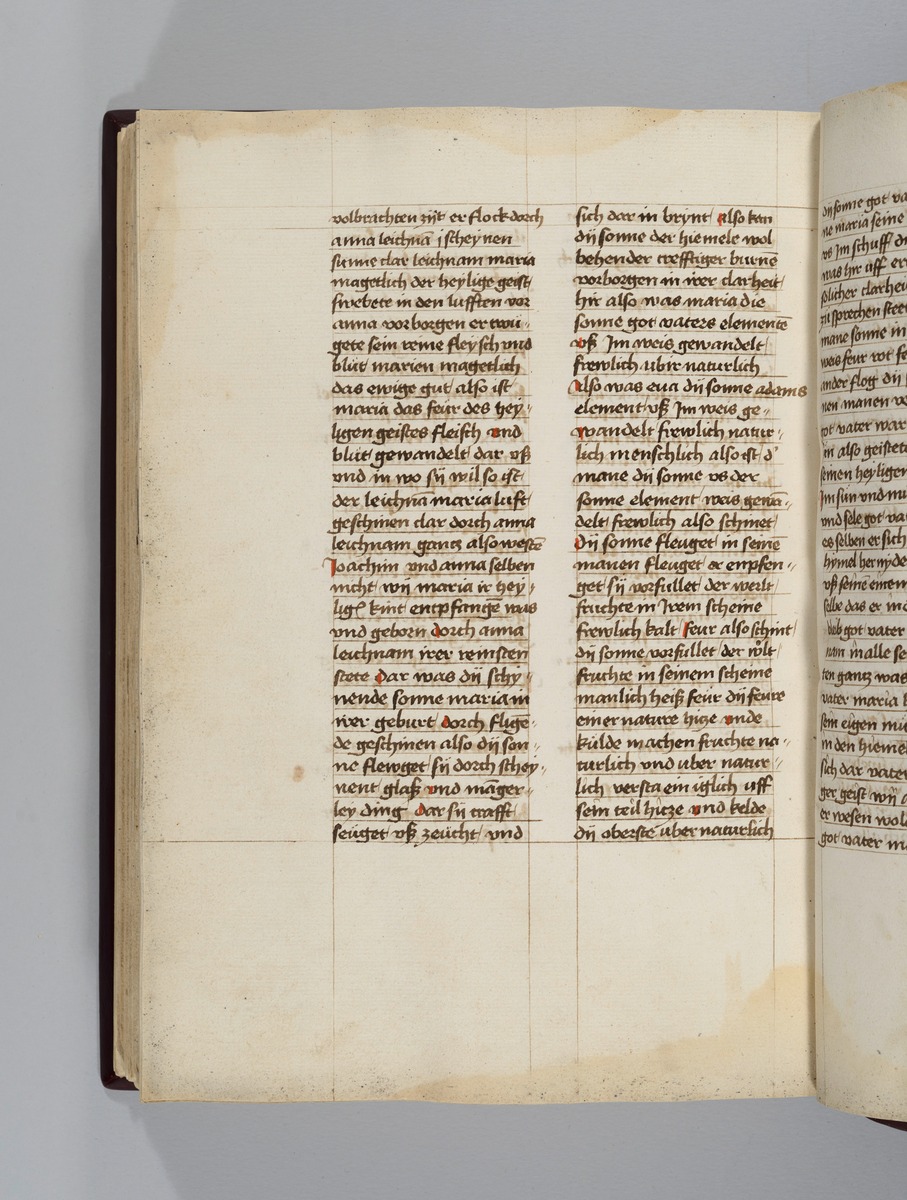 volbrachten zijt er flock dorch
anna leichnā j scheynen
sunne clar leichnam maria
magetlich der heylige geist
swebete in den lufften vor
anna vorborgen er twū-
gete sein reine fleysch vnd
blůt marien magetlich
das ewige gut also ist
maria das feür des hey-
ligen geistes fleisch vnd
blůt gewandelt dar vß
vnd in wo sÿ wil so ist
der leichnā maria luft
geschinen clar dorch anna
leichnam gantz also weste
Joachim vnd anna selben
nicht wÿ maria ir hey-
lig kint entpfangē was
vnd geborn dorch anna
leichnam irer reinsten
stete dar was dÿ schy-
nende sonne maria in
irer geburt dorch flige-
de geschinen also dÿ son-
ne flewget sÿ dorch schey-
nent glaß vnd māger-
ley ding dar sÿ crafft
seüget vß zeücht vnd
sich dar in brynt also kan
dÿ sonne der hiemele wol
behender creftiger burnē
vorborgen in irer clarheit
hir also was maria die
sonne got vaters elementē
vß Jm weis gewandelt
frewlich vbir naturlich
Also was eua dÿ sonne adams
element vß Jm weis ge-
wandelt frewlich natur-
lich menschlich also ist d'
mane dÿ sonne vs der
sonne element weis gewā-
delt frewlich also schinet
Dÿ sonne fleuget in seinē
manen fleuget er enpfen-
get sÿ vorfullet der werlt
fruchte in Irem scheine
frewlich kalt feur also schint
dÿ sonne vorfullet der wolt
fruchte in seinem scheine
manlich heiß feür dÿ feure
einer nature hicze vnde
kulde machen fruchte na-
turlich vnd vber natur-
lich versta ein iglich uff
sein teil hicze vnd kelde
dÿ oberste vber naturlich
dÿ sonne got va
ne maria seine
vs Jm schuff
was hir uff er
solicher clarhei
zu sprechen
mane sonne in
weis feur rot
ander flog dÿ
nen manen
got vater war
in also geistet
seinen heyligen
Jm sun vnd
vnd sele got va
es selben er sich
hymel hernyde
vß seinē einem
selbe das er
got vater
nam in alle se
ten gantz was
vater maria
sein eigen mu
in den hiemel
sich dar vater
ger geist wÿ
er wesen wol
got vater